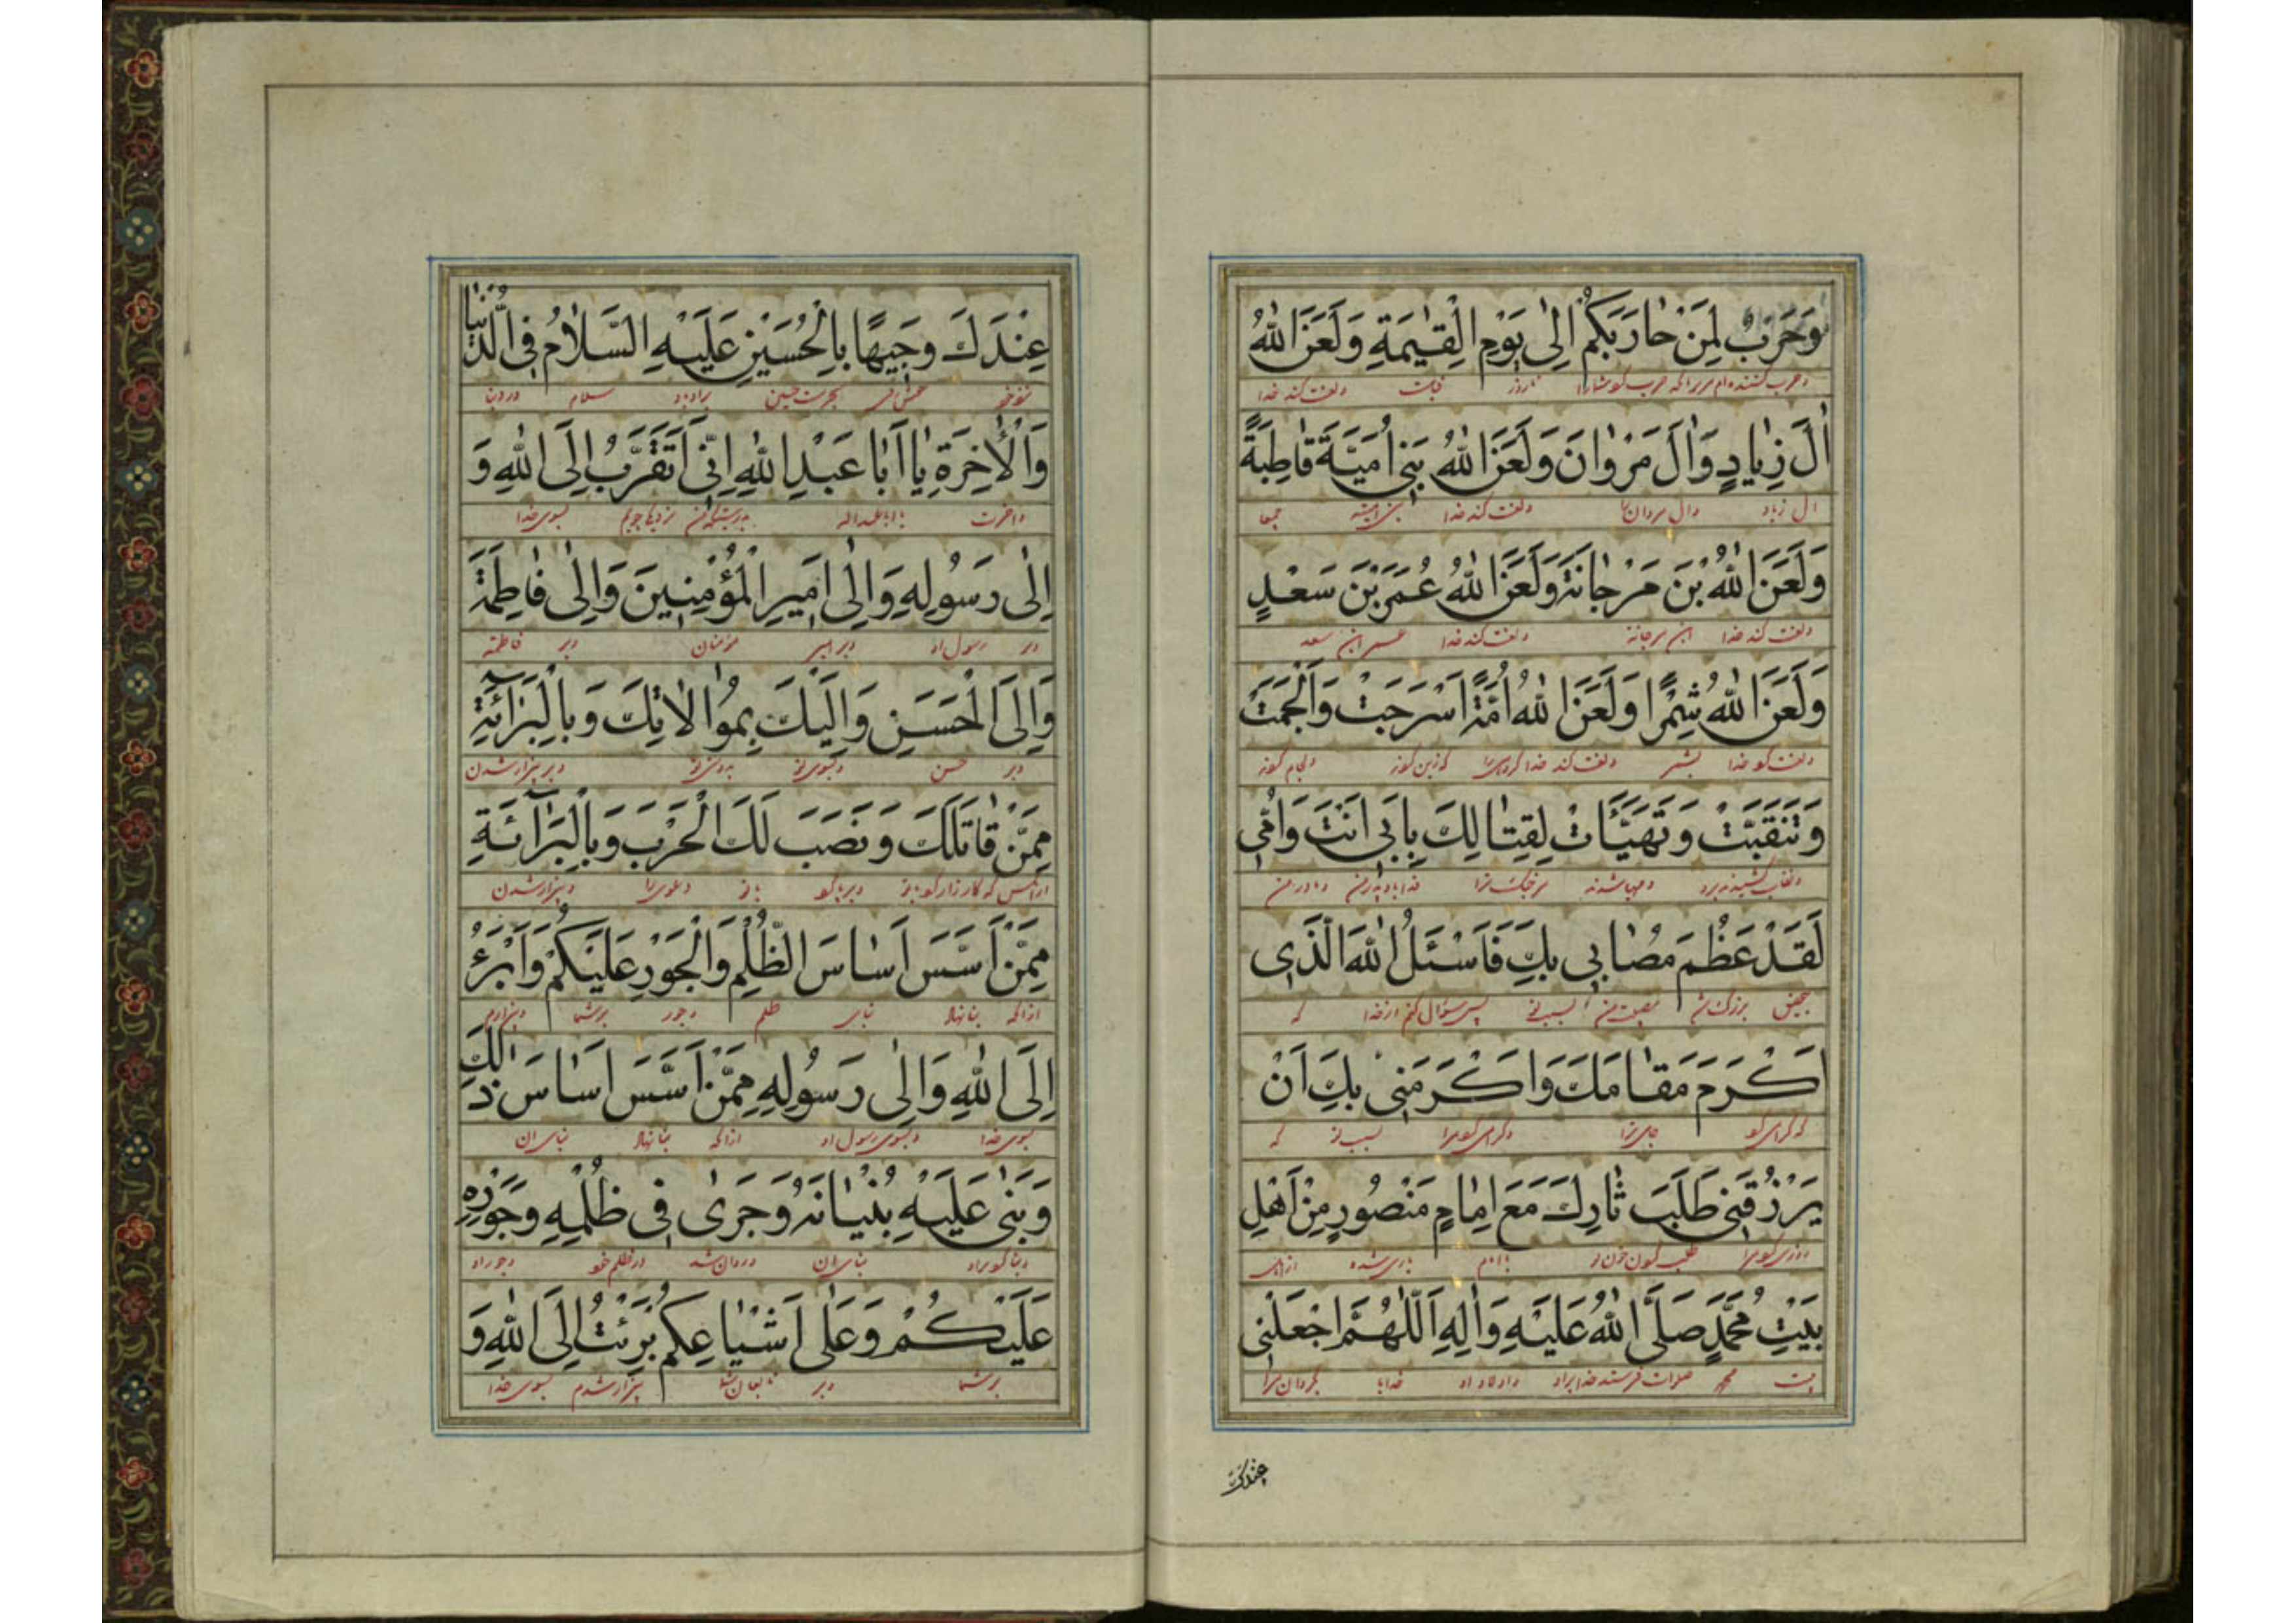 وَحَرْبٌ لِمَنْ حارَبَكُمْ اِلىٰ يَوْمِ الْقِيٰمَةِ وَلَعَنَ اللهُ
وحرب کننده‌ام مر مر انکه حرب کو شمارا تا روز قیامت ولعنت کند خدا
اٰلَ زِيادٍ وَاٰلَ مَرْوانَ وَلَعَنَ اللهُ بَنى اُمَيَّةَ قاطِبَةً
ال زیاد وال مروان را ولعنت کند خدا بنی امیه جمیعا
وَلَعَنَ اللهُ بْنَ مَرْجانَةَ وَلَعَنَ اللهُ عُمَرَ بْنَ سَعْدٍ
ولعنت کند خدا ابن مرجانه ولعنت کند خدا عمر ابن سعد
وَلَعَنَ اللهُ شِمْرًا وَلَعَنَ اللهُ اُمَّةً اَسْرَجَتْ وَاَلْجَمَتْ
ولعنت کو خدا بشمر ولعنت کند خدا کروهی را که زین کونه ولجام کونه
وَتَنَقَّبَتْ وَتَهَيَّأَتْ لِقِتالِكَ بِاَبى اَنْتَ وَاُمّى
ونقاب کشیدند برو ومهیا شدند مر جنک ترا فدا باد پدر من ومادر من
لَقَدْ عَظُمَ مُصابى بِكَ فَاَسْئَلُ اللهَ الَّذى
بتحقیق بزرک شد مصیبت من بسبب تو پس سؤال کنم از خدا که
اَكْرَمَ مَقامَكَ وَاَكْرَمَنى بِكَ اَنْ
که کرامی کو جای ترا وکرامی کو مرا بسبب تو که
يَرْزُقَنى طَلَبَ ثارِكَ مَعَ اِمامٍ مَنْصُورٍ مِنْ اَهْلِ
روزی کو مرا طلب کون خون تو با امام یاری شده از اهل
بَيْتِ مُحَمَّدٍ صَلَّى اللهُ عَلَيْهِ وَاٰلِهِ اَللّٰهُمَّ اجْعَلْنى
بیت محمد صلوات فرستد خدا براو واولاد او خدایا بکردان مرا
عندک
عِنْدَكَ وَجيهًا بِالْحُسَيْنِ عَلَيْهِ السَّلامُ فِى الدُّنْيا
نزد خو بحرمت حسین براو باد سلام در دنیا
وَالْاٰخِرَةِ يا اَبا عَبْدِ اللهِ اِنّى اَتَقَرَّبُ اِلَى اللهِ وَ
واخرت یا ابا عبد الله بدرستیکه من نزدیکی جویم بسوی خدا
اِلىٰ رَسُولِهِ وَاِلىٰ اَميرِ الْمُؤْمِنينَ وَاِلىٰ فاطِمَةَ
وبر رسول او وبر امیر مؤمنان وبر فاطمه
وَاِلَى الْحَسَنِ وَاِلَيْكَ بِمُوالاتِكَ وَبِالْبَرائَةِ
وبر حسن وبسوی تو بدوستی تو وبر بیزار شدن
مِمَّنْ قاتَلَكَ وَنَصَبَ لَكَ الْحَرْبَ وَبِالْبَرآئَةِ
از انکس که کارزار کو با تو وبرپا کو با تو دعوی را وبیزار شدن
مِمَّنْ اَسَّسَ اَساسَ الظُّلْمِ وَالْجَوْرِ عَلَيْكُمْ وَاَبْرَءُ
از انکه بنا نهاد بنای ظلم وجور بر شما وبیزارم
اِلَى اللهِ وَاِلىٰ رَسُولِهِ مِمَّنْ اَسَّسَ اَساسَ ذٰلِكَ
بسوی خدا وبسوی رسول او از انکه بنا نهاد بنای ان
وَبَنىٰ عَلَيْهِ بُنْيانَهُ وَجَرىٰ فى ظُلْمِهِ وَجَوْرِهِ
وبنا کو براو بنای ان وروان شد در ظلم خو وجور او
عَلَيْكُمْ وَعَلىٰ اَشْياعِكُمْ بَرِئْتُ اِلَى اللهِ وَ
بر شما وبر تابعان شما بیزار شدم بسوی خدا